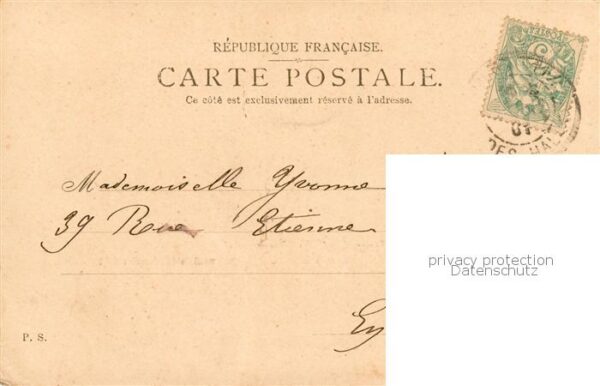 RÉPUBLIQUE FRANÇAISE.
CARTE POSTALE.
Ce côté est exclusivement réservé à l'adresse.
01
DES HAL
Mademoiselle Yvonne
39 Rue Etienne
privacy protection
Datenschutz
P. S.